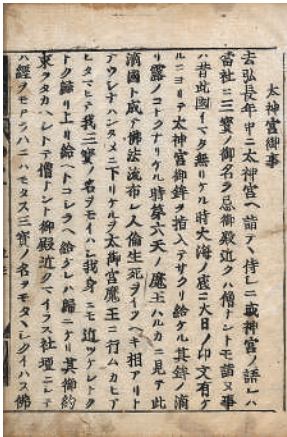 太神宮御事
去弘長年中ニ太神宮ヘ詣テヽ侍シニ或神官ノ語シハ
當社ニ三寳ノ御名ヲ忌御殿近クハ僧ナントモ詣ヌ事
ハ昔此國イマタ無リケル時大海ノ底ニ大日ノ印文有ケ
ルニヨリテ太神宮御鉾ヲ指入テサクリ給ケル其鉾ノ滴
リ露ノコトクナリケル時第六天ノ魔王ハルカニ見テ此
滴國ト成テ佛法流布シ人倫生死ヲイツヘキ相アリト
テウシナハンタメニ下リケルヲ太御宮魔王ニ行ムカヒア
ヒタマヒテ我三寳ノ名ヲモイハシ我身ニモ近ツケシトク
トク歸リ上リ給ヘトコシラヘ給ケレハ歸ニケリ其御約
束ヲタカヘシトテ僧ナント御殿近クマイラス社壇ニシテ
ハ經ヲモアラハニハモタス三寳ノ名ヲモタヽシクイハス佛